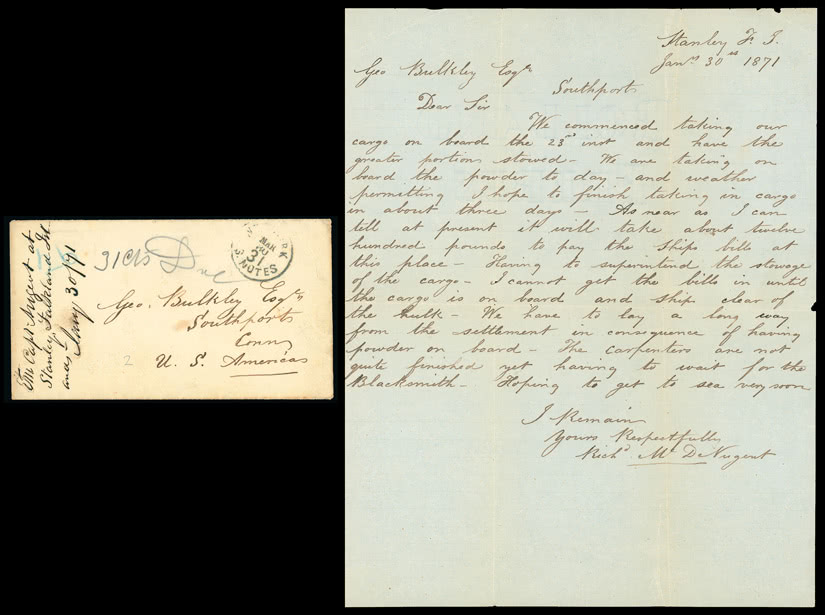 Em Capt Nugent at
Stanley Falkland Isl
ands Jany 30/71
31 cts Due
YORK
MAR
30
31
U.S. NOTES
Geo. Bulkley Esqr
Southport
Conn
2
U. S. Americas
Stanley F. I.
Jany 30th 1871
Geo Bulkley Esqr
Southport
Dear Sir
We commenced taking our
cargo on board the 23rd inst and have the
greater portion stowed - We are taking on
board the powder to day - and weather
permitting I hope to finish taking in cargo
in about three days - As near as I can
tell at present it will take about twelve
hundred pounds to pay the ships bills at
this place - Having to superintend the stowage
of the cargo - I cannot get the bills in until
the cargo is on board and ship clear of
the hulk - We have to lay a long way
from the settlement in consequence of having
powder on board - The carpenters are not
quite finished yet having to wait for the
Blacksmith - Hoping to get to sea very soon
I Remain
Yours Respectfully
Richd Mc DeNugent